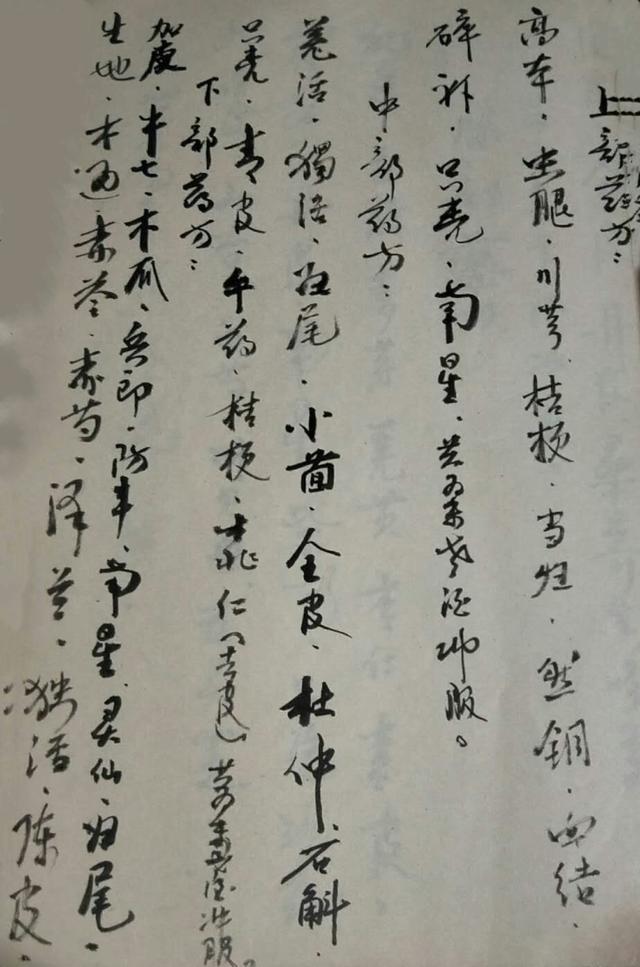 上部药方：
高本、虫腿、川芎、桔梗、当归、然铜、血结、
碎补、只壳、南星、共为末老酒冲服。
中部药方：
羌活、独活、归尾、小茴、全皮、杜仲、石斛、
只壳、青皮、乌药、桔梗、桃仁（去皮）共末酒冲服。
下部药方：
加皮、牛七、木瓜、兵郎、防丰、南星、灵仙、归尾、
生地、木通、赤苓、赤芍、泽兰、独活、陈皮、